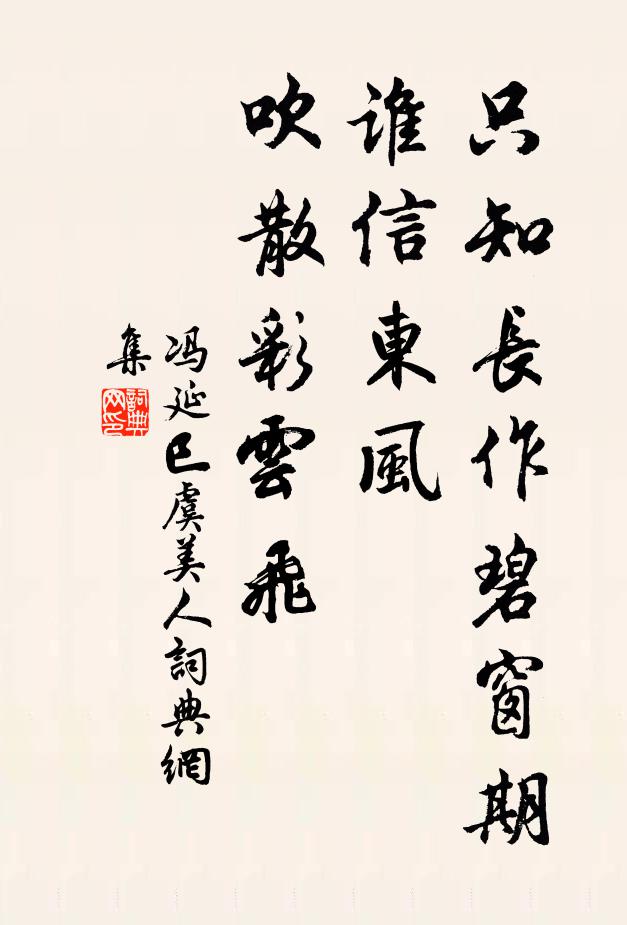 只知長作碧窗期
誰信東風
吹散彩雲飛
馮延巳虞美人詞典網
集
詞典
网印